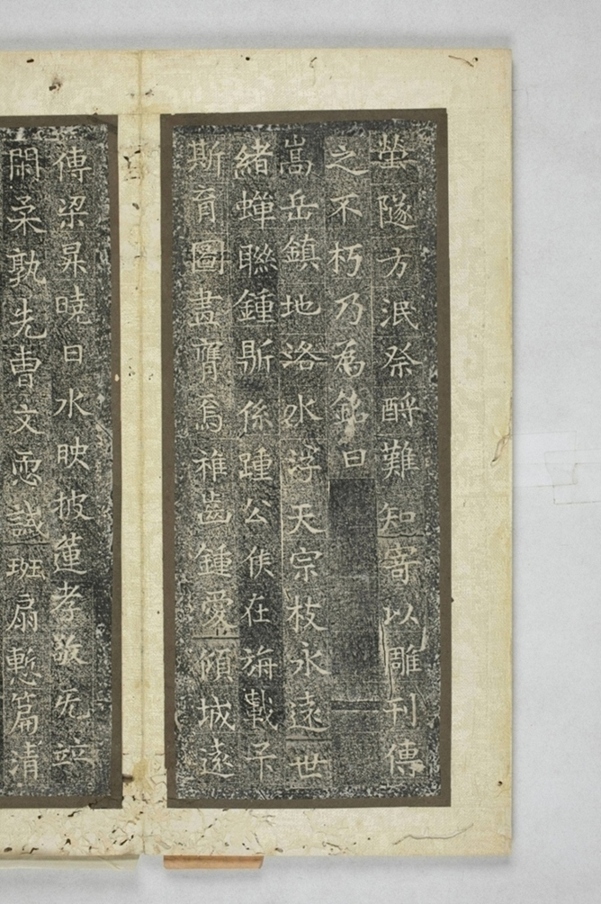 塋隧方泯祭酹難知寄以雕刊傳
之不朽乃為銘曰
嵩岳鎮地洛水浮天宗枝永遠世
緒蟬聯鍾斯係踵公侯在旃下
斯育圖畫膺焉稚齒鍾愛傾城遠
傳梁昇曉日水映披蓮孝敬旡竝
閑柔孰先曹文恧誡班扇慙篇清